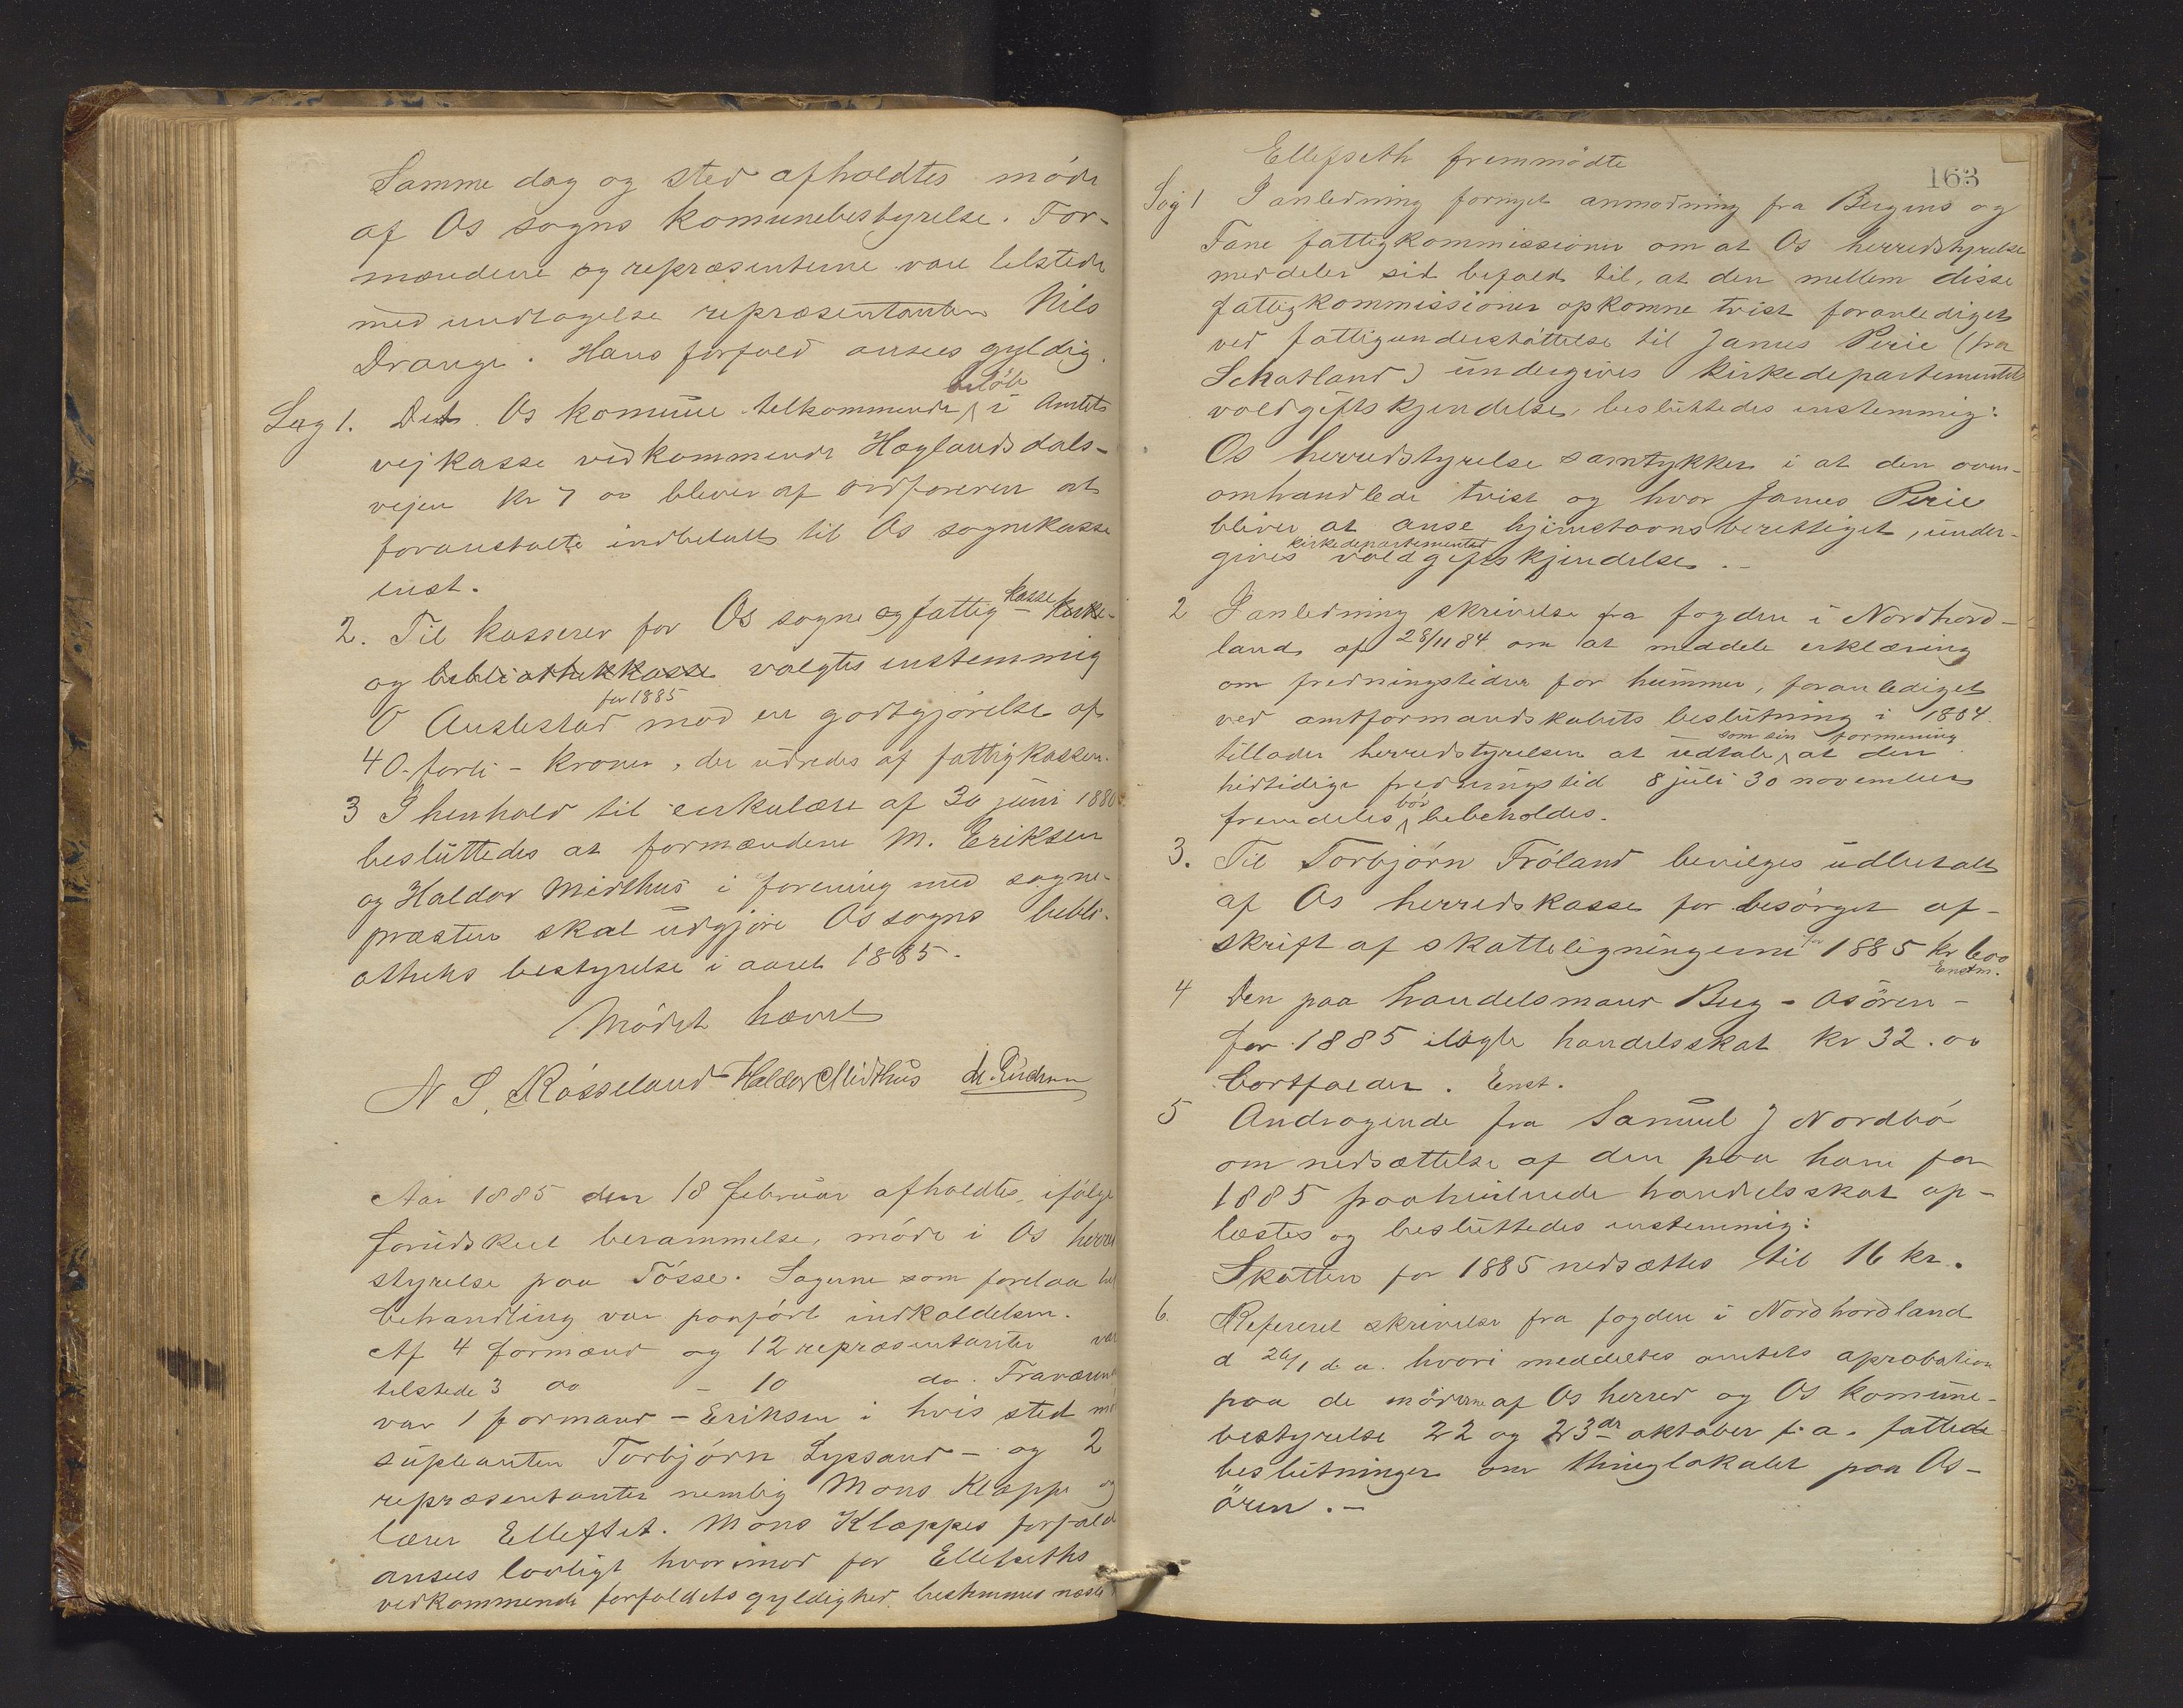 Samme dag og sted afholdtes möde
af Os sogns komunebestyrelse. For-
mændene og repræsenterne vare tilstede
med undtagelse repræsentanten Nils
Drange. Hans forfald ansees gyldig.
Sag 1. Det Os komune tilkommende beløb i Amtets
vejkasse vedkommende Hæglandsdals-
vejen kr 7 00 bliver af ordføreren at
foranstalte indbetalt til Os sognekasse
enst.
2. Til kasserer for Os sogne og fattig kasse kirke-
og bibliothekkasse valgtes enstemmig
O Auslestad for 1885 mod en godtgjörelse af
40 - forti - kroner, der udredes af fattigkassen.
3 I henhold til cirkulære af 30 juni 1880
besluttedes at formændene M. Eriksen
og Haldor Midthus i forening med sogne-
præsten skal udgjöre Os sogns bibli-
otheks bestyrelse i aaret 1885.
Mödet hævet
N S. Rösseland Haldor Midthus
Aar 1885 den 18 februar afholdtes, ifölge
forudskeet berammelse, möde i Os herred
styrelse paa Tösse. Sagerne som forelaa til
behandling var paafört indkaldelsen.
Af 4 formænd og 12 repræsentanter var
tilstede 3 do - 10 do. Fraværende
var 1 formand - Eriksen i hvis sted mö
supleanten Torbjörn Lyssand - og 2
repræsentanter nemlig Mons Klæppe og
lærer Ellefset. Mons Klæppes forfald
ansees lovligt hvorimod for Ellefseths
vedkommende forfaldets gyldighed bestemmes næste
163
Ellefseth fremmödte
Sag 1 I anledning fornyet anmodning fra Bergens og
Fane fattigkommissioner om at Os herredstyrelse
meddeler sit bifald til, at den mellem disse
fattigkommissioner opkomne tvist foranlediget
ved fattigunderstöttelse til James Pirie (fra
Schotland) undergives kirkedepartementets
voldgiftskjendelse, besluttedes enstemmig:
Os herredstyrelse samtykker i at den oven-
omhandlede tvist og hvor James Pirie
bliver at anse hjemstavnsberettiget, under-
gives kirkedepartementets voldgiftskjendelse. -
2 I anledning skrivelse fra fogden i Nordhord-
land af 28/11 84 om at meddele erklæring
om fredningstiden for hummer, foranlediget
ved amtformandskabets beslutning i 1884.
tillader herredstyrelsen at udtale som sin formening at den
hidtidige fredningstid 8 juli 30 november
fremdeles bör bebeholdes.
3. Til Torbjörn Fröland bevilges udbetalt
af Os herredskasse for besörget af-
skrift af skatteligningerne for 1885 kr 6 00
Enstm.
4 Den paa handelsmand Berg - Osören -
for 1885 ilagte handelsskat kr 32. 00
bortfalder. Enst.
5 Andragende fra Samuel J Nordbö
om nedsættelse af den paa ham for
1885 paahvilende handelsskat op-
læstes og besluttedes enstemmig:
Skatten for 1885 nedsættes til 16 kr.
6. Refereret skrivelse fra fogden i Nordhordland
d 26/1 d. a. hvori meddeltes amtets aprobation
paa de möderne af Os herred og Os komune-
bestyrelse 22 og 23de oktober f. a. fattede
beslutninger om thinglokalet paa Os-
ören. -